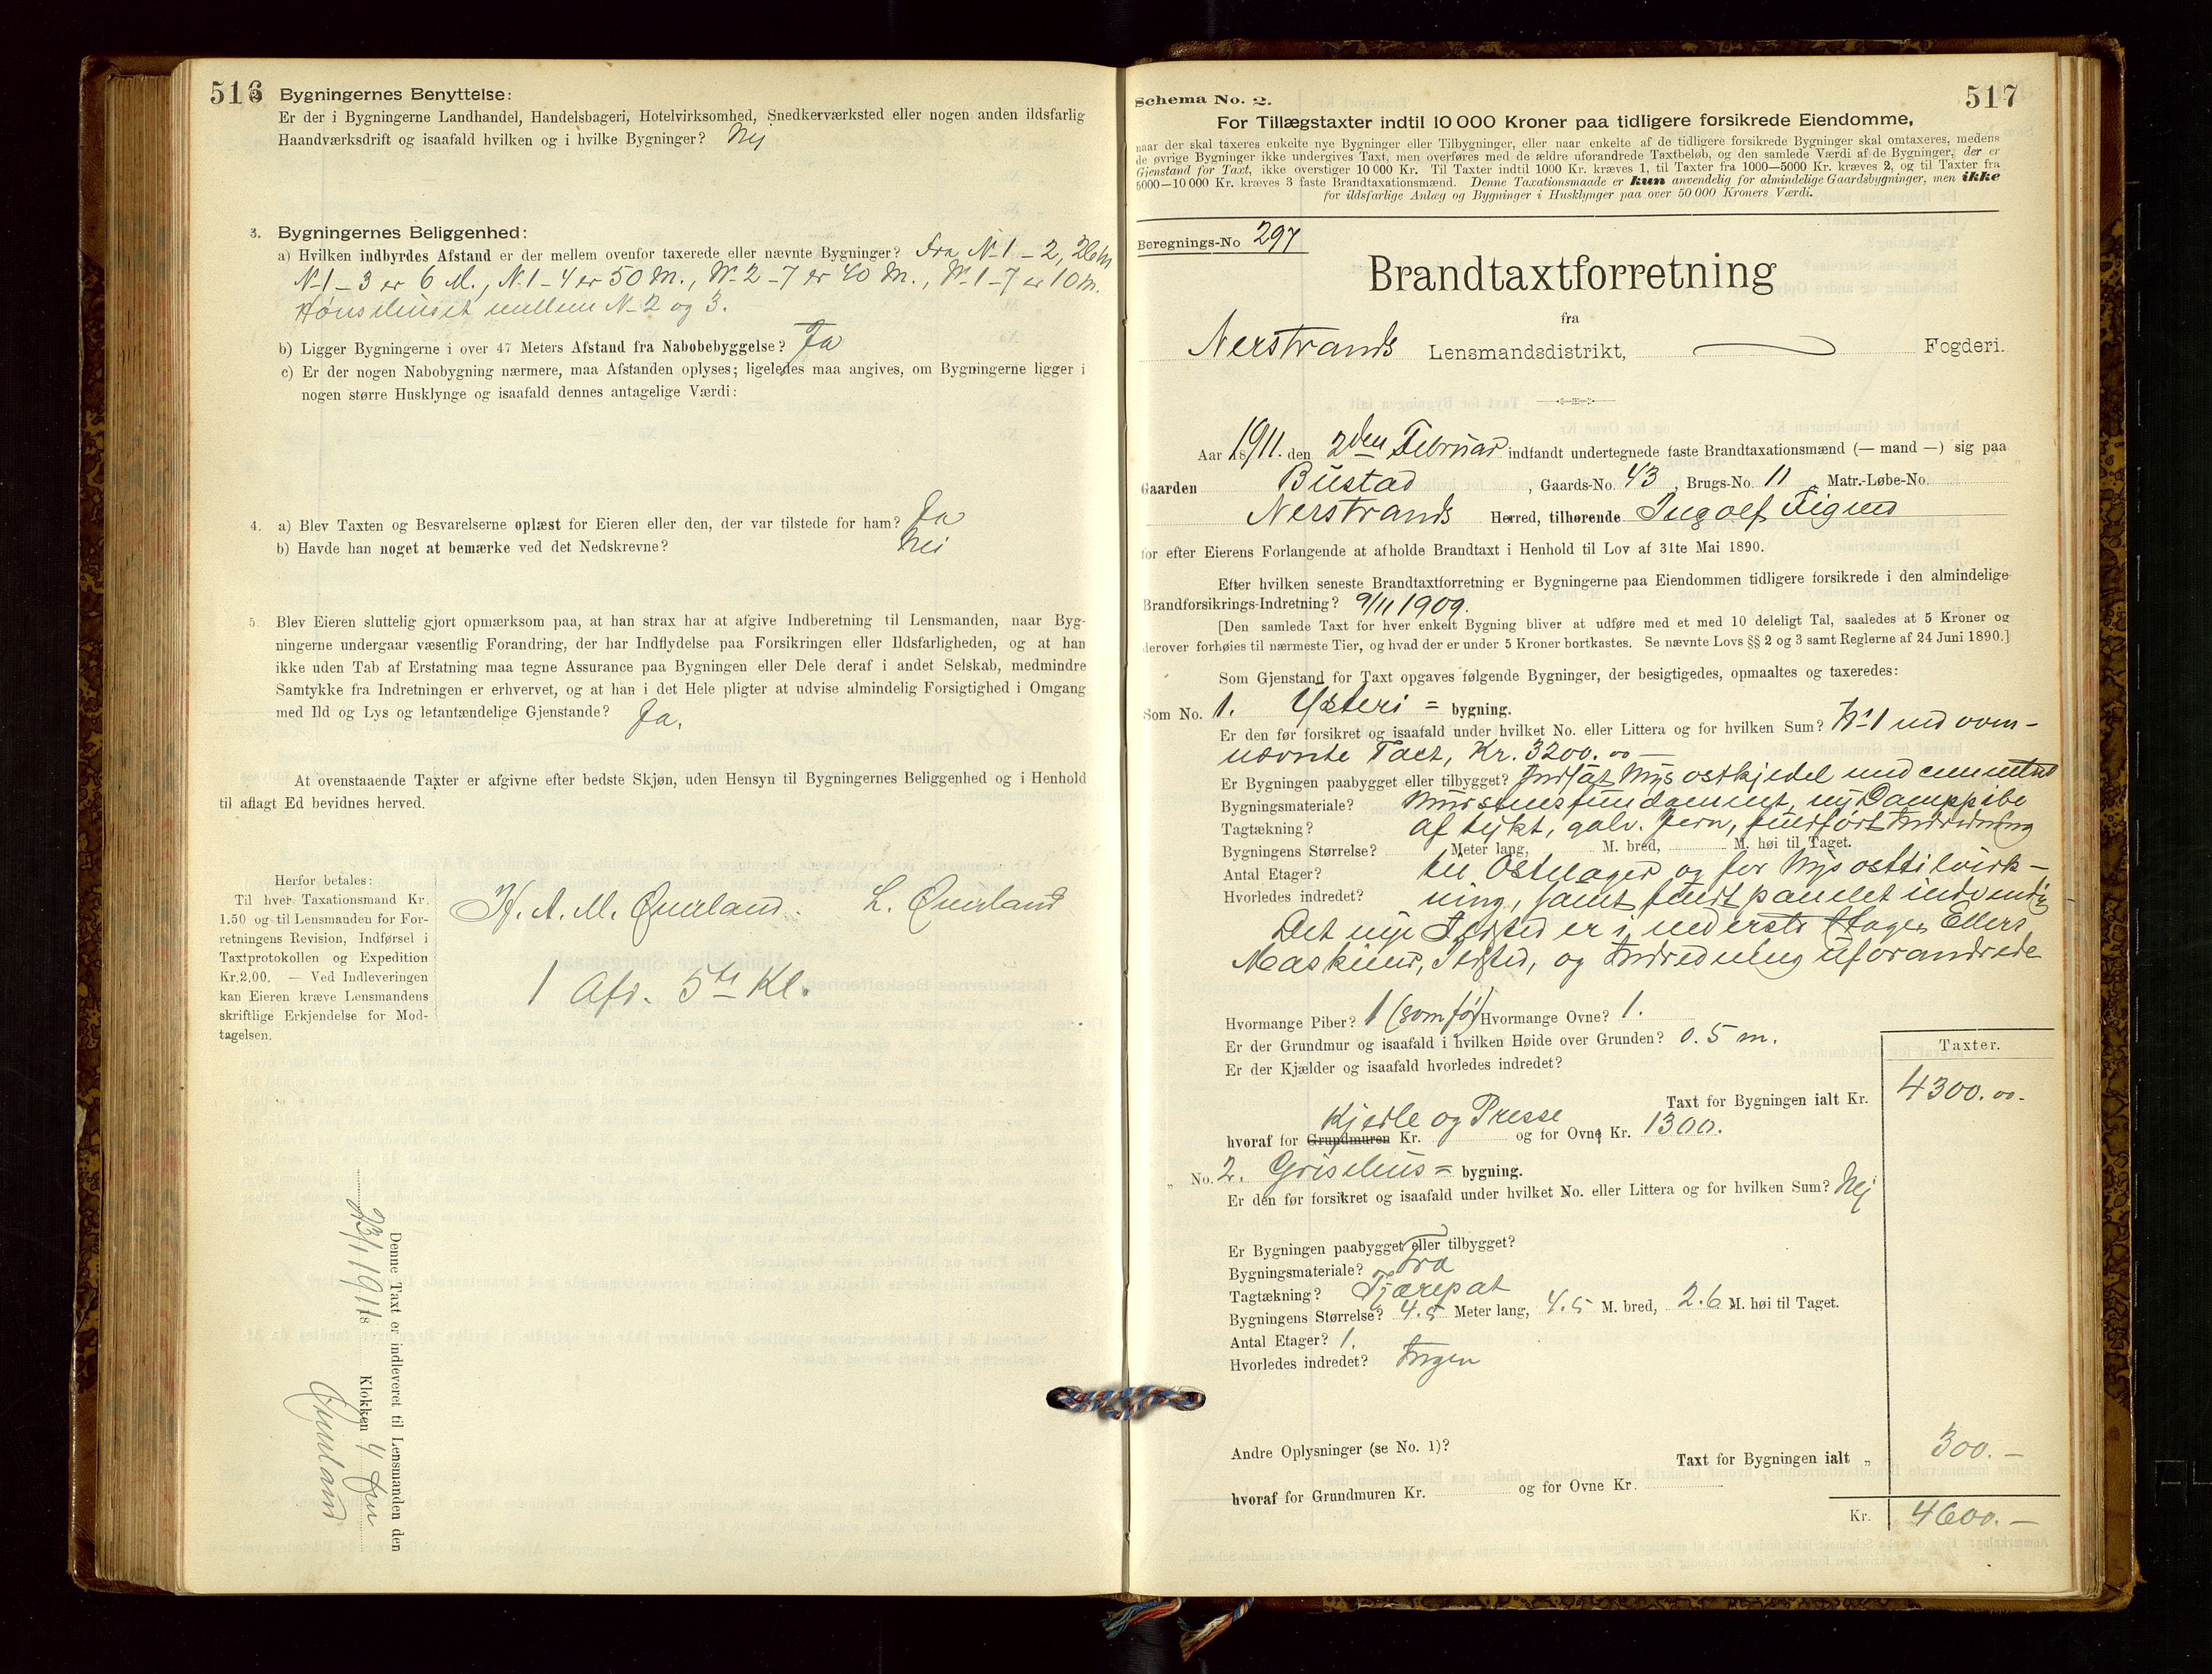 516
2. Bygningernes Benyttelse:
Er der i Bygningerne Landhandel, Handelsbageri, Hotelvirksomhed, Snedkerværksted eller nogen anden ildsfarlig
Haandværksdrift og isaafald hvilken og i hvilke Bygninger? Nej
3. Bygningernes Beliggenhed:
a) Hvilken indbyrdes Afstand er der mellem ovenfor taxerede eller nævnte Bygninger? Fra N-1 - 2, 26 m
N-1 - 3 er 6 M., N-1 - 4 er 50 M., No 2 - 7 er 40 M., No 1 - 7 er 10 m.
Hønsehuset mellem N-2 og 3.
b) Ligger Bygningerne i over 47 Meters Afstand fra Nabobebyggelse? Ja
c) Er der nogen Nabobygning nærmere, maa Afstanden oplyses; ligeledes maa angives, om Bygningerne ligger i
nogen større Husklynge og isaafald dennes antagelige Værdi:
4. a) Blev Taxten og Besvarelserne oplæst for Eieren eller den, der var tilstede for ham? Ja
b) Havde han noget at bemærke ved det Nedskrevne? Nei
5. Blev Eieren sluttelig gjort opmærksom paa, at han strax har at afgive Indberetning til Lensmanden, naar Byg-
ningerne undergaar væsentlig Forandring, der har Indflydelse paa Forsikringen eller Ildsfarligheden, og at han
ikke uden Tab af Erstatning maa tegne Assurance paa Bygningen eller Dele deraf i andet Selskab, medmindre
Samtykke fra Indretningen er erhvervet, og at han i det Hele pligter at udvise almindelig Forsigtighed i Omgang
med Ild og Lys og letantændelige Gjenstande? Ja.
At ovenstaaende Taxter er afgivne efter bedste Skjøn, uden Hensyn til Bygningernes Beliggenhed og i Henhold
til aflagt Ed bevidnes herved.
Herfor betales:
Til hver Taxationsmand Kr.
1.50 og til Lensmanden for For-
retningens Revision, Indførsel i
Taxtprotokollen og Expedition
Kr.2.00. — Ved Indleveringen
kan Eieren kræve Lensmandens
skriftlige Erkjendelse for Mod-
tagelsen.
H. A. M. Øverland. L. Øverland
1 Afd. 5te Kl.
Denne Taxt er indleveret til Lensmanden den
1911 Klokken 4
Øverland
517
Schema No. 2.
For Tillægstaxter indtil 10 000 Kroner paa tidligere forsikrede Eiendomme,
naar der skal taxeres enkelte nye Bygninger eller Tilbygninger, eller naar enkelte af de tidligere forsikrede Bygninger skal omtaxeres, medens
de øvrige Bygninger ikke undergives Taxt, men overføres med de ældre uforandrede Taxtbeløb, og den samlede Værdi af de Bygninger, der er
Gjenstand for Taxt, ikke overstiger 10 000 Kr. Til Taxter indtil 1000 Kr. kræves 1, til Taxter fra 1000—5000 Kr. kræves 2, og til Taxter fra
5000—10 000 Kr. kræves 3 faste Brandtaxationsmænd. Denne Taxationsmaade er kun anvendelig for almindelige Gaardsbygninger, men ikke
for ildsfarlige Anlæg og Bygninger i Husklynger paa over 50 000 Kroners Værdi.
Beregnings-No 297
Brandtaxtforretning
fra
Nerstrands Lensmandsdistrikt, Fogderi.
Aar 1911. den 2den Februar indfandt undertegnede faste Brandtaxationsmænd (— mand —) sig paa
Gaarden Bustad, Gaards-No. 43, Brugs-No. 11, Matr.-Løbe-No.
Nerstrands Herred, tilhørende Ingolf Tigend
for efter Eierens Forlangende at afholde Brandtaxt i Henhold til Lov af 31te Mai 1890.
Efter hvilken seneste Brandtaxtforretning er Bygningerne paa Eiendommen tidligere forsikrede i den almindelige
Brandforsikrings-Indretning? 9/11 1909.
[Den samlede Taxt for hver enkelt Bygning bliver at udføre med et med 10 deleligt Tal, saaledes at 5 Kroner og
derover forhøies til nærmeste Tier, og hvad der er under 5 Kroner bortkastes. Se nævnte Lovs §§ 2 og 3 samt Reglerne af 24 Juni 1890.]
Som Gjenstand for Taxt opgaves følgende Bygninger, der besigtigedes, opmaaltes og taxeredes:
Som No. 1. Ysteri = bygning.
Er den før forsikret og isaafald under hvilket No. eller Littera og for hvilken Sum? No 1 ved oven-
nævnte Taxt, Kr. 3200.00
Er Bygningen paabygget eller tilbygget? Indsat Mysostkjedel med cementert
Bygningsmateriale? Murstensfundament, ny Damppibe
Tagtækning? af tykt, galv. Jern, Indredning
Bygningens Størrelse? Meter lang, M. bred, M. høi til Taget.
Antal Etager? til Ostelager og for Mysosttilvirk-
Hvorledes indredet? ning, samt panelet indvendig
Det nye Ildsted er i nederste Etage. Ellers
Maskiner, Ildsted, og Indredning uforandrede
Hvormange Piber? 1 (som før) Hvormange Ovne? 1.
Er der Grundmur og isaafald i hvilken Høide over Grunden? 0.5 m.
Er der Kjælder og isaafald hvorledes indredet?
Taxter.
Taxt for Bygningen ialt Kr. 4300.00.
Kjedle og Presse
hvoraf for Grundmuren Kr. og for Ovne Kr. 1300.
„ No. 2. Grisehus = bygning.
Er den før forsikret og isaafald under hvilket No. eller Littera og for hvilken Sum? Nej
Er Bygningen paabygget eller tilbygget?
Bygningsmateriale? Træ
Tagtækning? Tjærepap
Bygningens Størrelse? 4.5 Meter lang, 4.5 M. bred, 2.6 M. høi til Taget.
Antal Etager? 1.
Hvorledes indredet? Ingen
Andre Oplysninger (se No. 1)?
Taxt for Bygningen ialt „ 300.—
hvoraf for Grundmuren Kr. og for Ovne Kr.
Kr. 4600.—